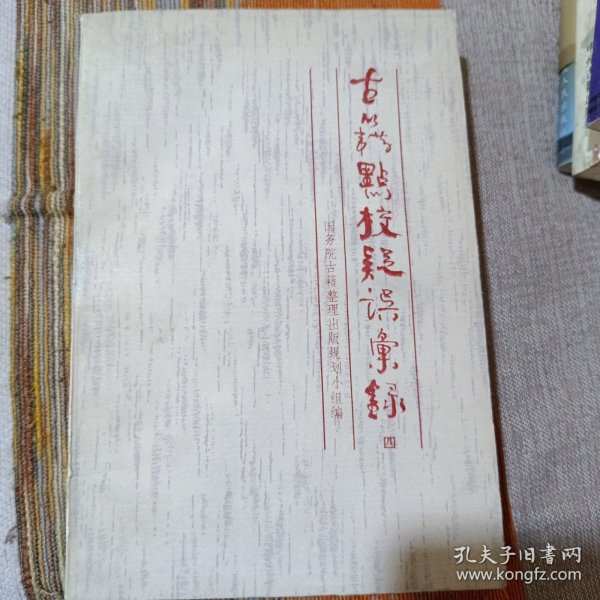 古籍點校疑误彙録
四
国务院古籍整理出版规划小组编
孔夫子旧书网
www.kongfz.com